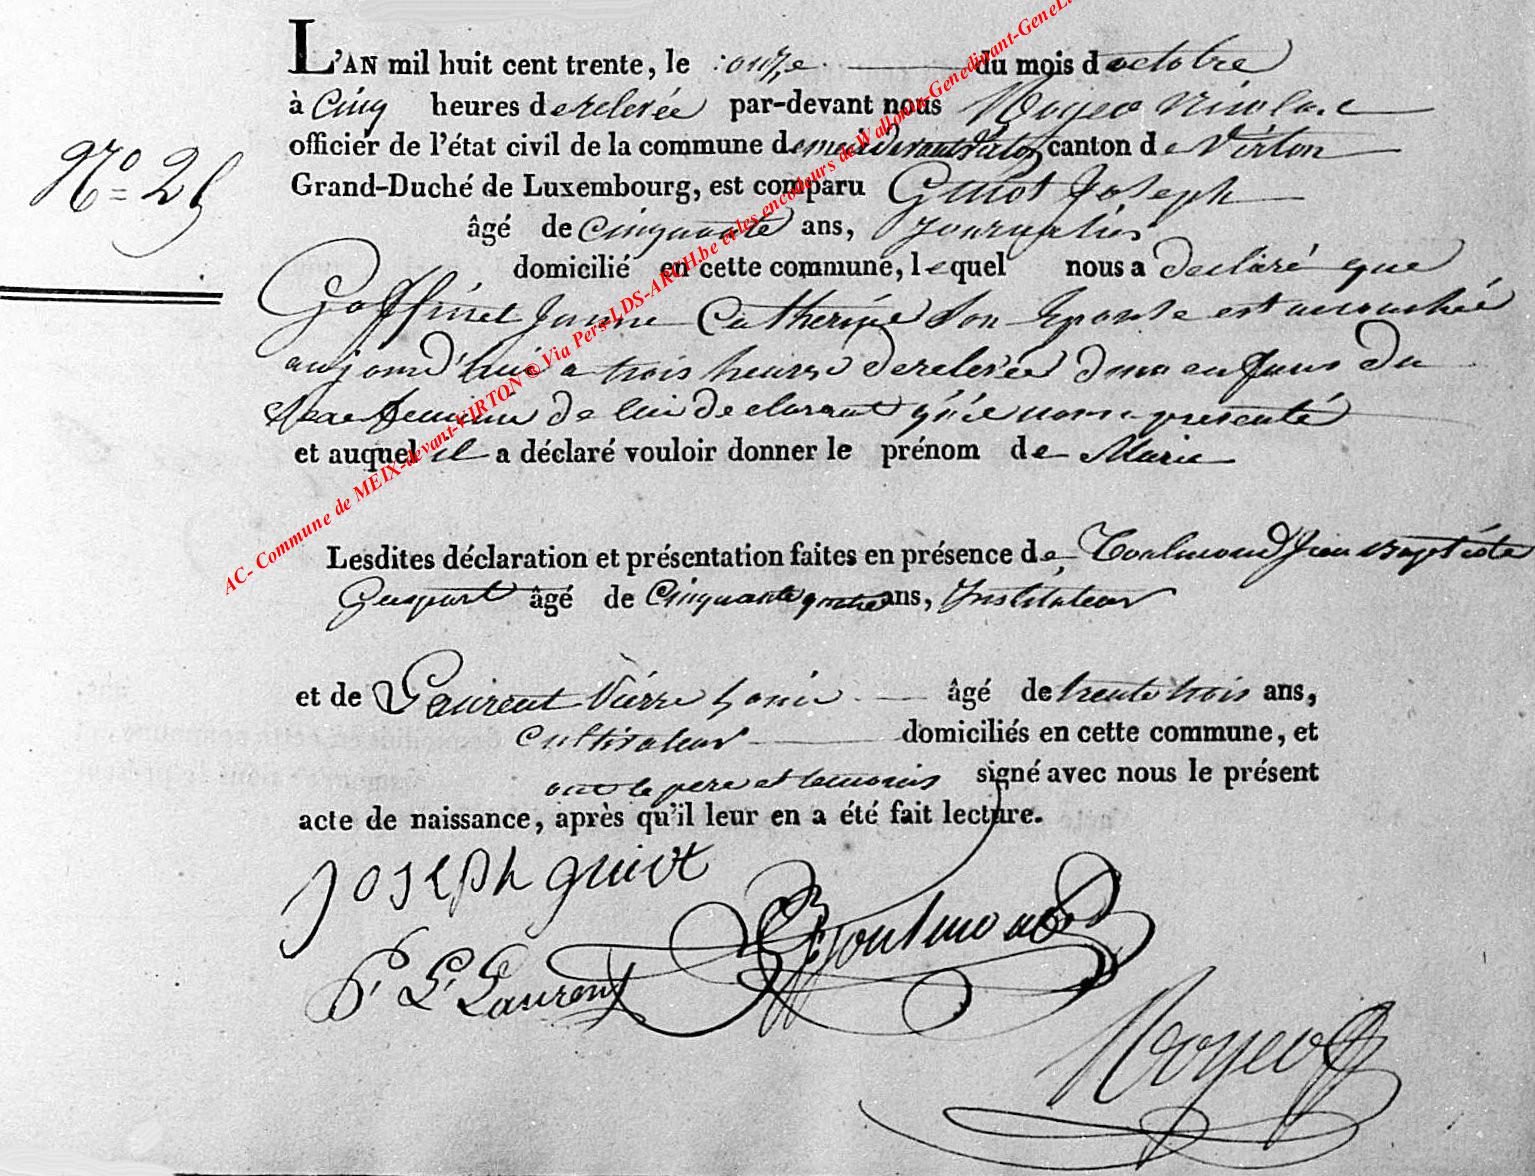 L'AN mil huit cent trente, le onze du mois d'octobre
à Cinq heures de relevée par-devant nous Nicolas
officier de l'état civil de la commune de meix devant virton canton de Virton
N° 25
Grand-Duché de Luxembourg, est comparu Guiot Joseph
âgé de Cinquante ans, Journalier
domicilié en cette commune, lequel nous a declaré que
Goffinet Jeanne Catherine Son Epouse est accouchée
aujourd'hui a trois heures de relevée d'un enfans du
Sexe feminin de lui declarant qu'il nous a presenté
et auquel il a déclaré vouloir donner le prénom de Marie
Lesdites déclaration et présentation faites en présence de Toulmond Jean Baptiste
Gaspart âgé de Cinquante quatre ans, Instituteur
et de Laurent Pierre Louis âgé de trente trois ans,
Cultivateur domiciliés en cette commune, et
ont le pere et temoins signé avec nous le présent
acte de naissance, après qu'il leur en a été fait lecture.
Joseph guiot
Toulmond
P. L. Laurent
AC- Commune de MEIX-devant-VIRTON © Via Pers-LDS-ARCH.be et les encodeurs de Wallonia-Genedinant-GeneL